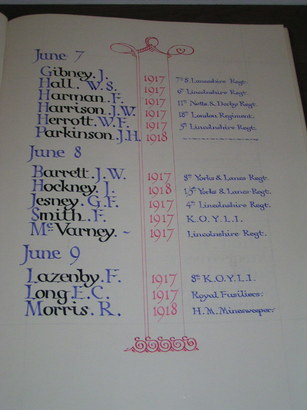 June 7
Gibney. J. 1917 7th S Lancashire Regt.
Hall. W. S. 1917 6th Lincolnshire Regt.
Harman. F. 1917 11th Notts & Derby Regt.
Harrison. J.W. 1917 18th London Regiment.
Herrott. W. F. 1917 5th Lincolnshire Regt.
Parkinson. J.H. 1918
June 8
Barrett. J. W. 1917 8th Yorks & Lancs Regt.
Hockney. J. 1918 1/5 Yorks & Lancs Regt.
Jesney. G. F. 1917 4th Lincolnshire Regt.
Smith. F. 1917 K. O. Y. L. I.
Mc Varney. - 1917 Lincolnshire Regt.
June 9
Lazenby. F. 1917 8th K. O. Y. L. I.
Long. E. C. 1917 Royal Fusiliers:
Morris. R. 1918 H. M. Minesweeper: